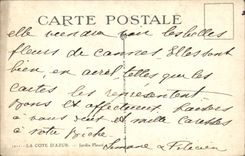 CARTE POSTALE
elle viendra voir les belles
fleurs de cannes Elles sont
bien, en avril telles que les
cartes les représentent
Bons et affectueux baisers
à vous tous et mille caresses
à votre
Simone & Félicien
LA CÔTE D'AZUR. - Jardin Fleuri